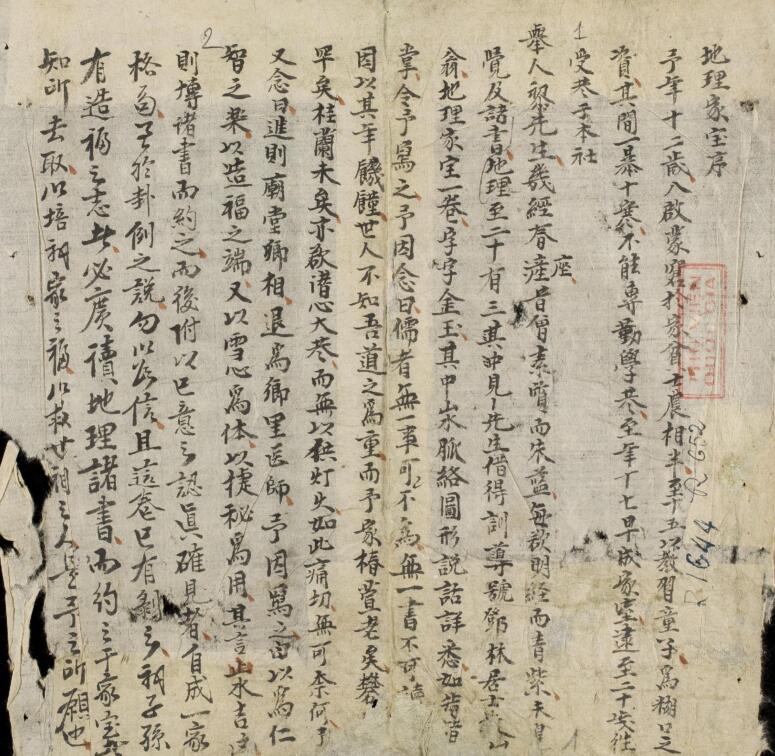 地理家宝序
予年十二歲入啟蒙窘於家貧士農相半至十五以教習童子為糊口之
資其間一暴十寒不能專勤學業至年十七早成家室遠至二十歲往
受業于本社
舉人黎先生幾經春
座
昔曾素質而朱藍每欲明經而青紫夫自
覺及諸書地理至二十有三其中見先生借得訓導號鄧林居士
翁地理家宝一卷字字金玉其中山水脈絡圖形說話詳悉如指諸
掌令予寫之予因念曰儒者無一事可不為無一書不可讀
因以其年饑饉世人不知吾道之為重而予家椿萱老矣
罕矣桂蘭未矣亦欲潜心大卷而無以供灯火如此痛切無可奈何予
又念曰進則廟堂卿相退為鄉里医師予因寫之由以為仁
智之樂以造福之端又以雪心為体以捷秘為用其言山水吉凶
則博諸書而約之而後附以已意之認真確見者自成一家
格言至於卦例之說勿以為信且這卷已有剩之祠子孫
有造福之志者必廣讀地理諸書而約之于家宝
知所去取以培祠家之福以救世祠之人是予之所願也
1
2
R 652
R 1644